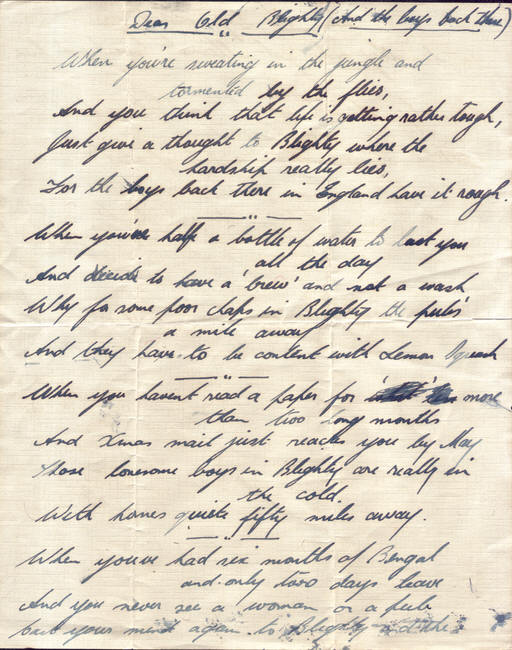 Dear Old Blighty (And the boys back there)
When you're sweating in the jungle and
tormented by the flies,
And you think that life is getting rather tough,
Just give a thought to Blighty where the
hardship really lies,
For the boys back there in England have it rough.
When you've half a bottle of water to last you
all the day
And decide to have a 'brew' and not a wash
Why for some poor chaps in Blighty the pub's
a mile away
And they have to be content with Lemon Squash
When you havent read a paper for more
than two long months
And Xmas mail just reaches you by May
Those lonesome boys in Blighty are really in
the cold.
With homes quite fifty miles away.
When you've had six months of Bengal
and only two days leave
And you never see a woman or a pub
cast your mind again to Blighty and the